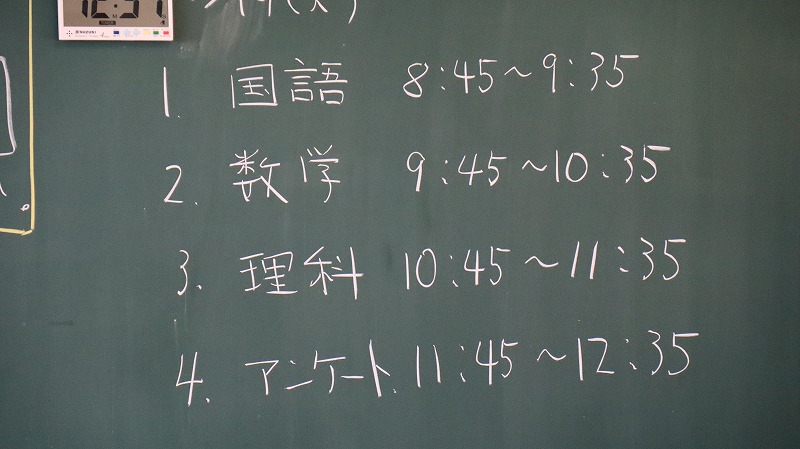 1. 国語 8:45～9:35
2. 数学 9:45～10:35
3. 理科 10:45～11:35
4. アンケート 11:45～12:35